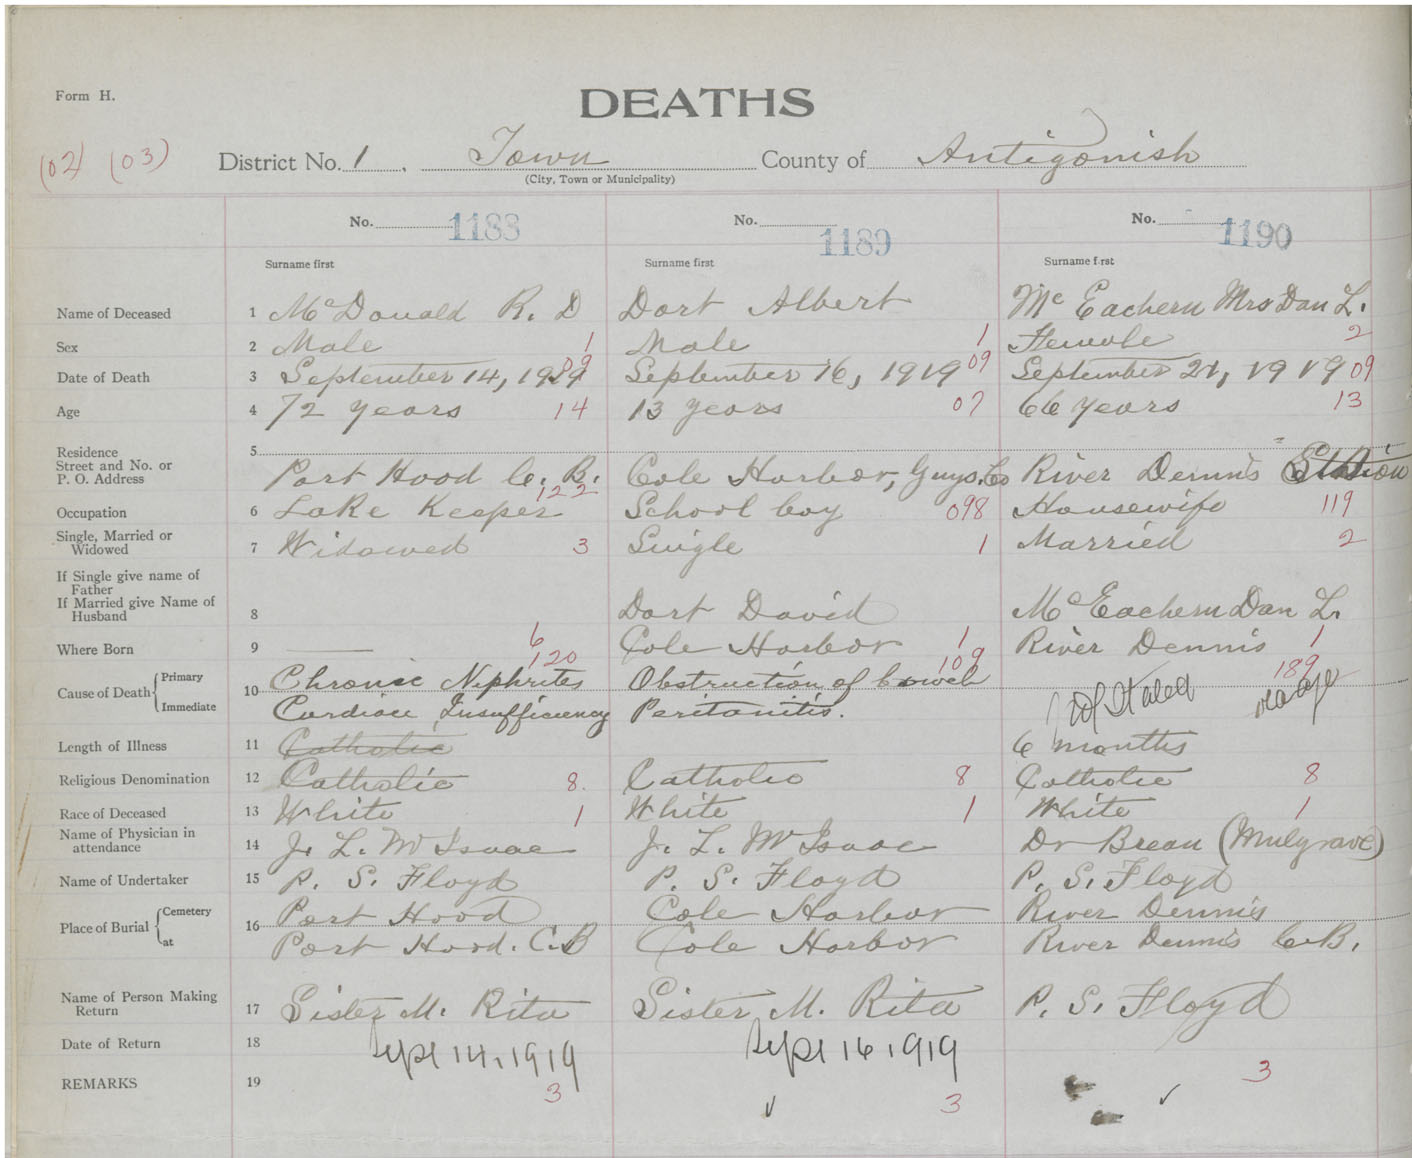 Form H.
DEATHS
(02) (03) District No. 1, Town County of Antigonish
(City, Town or Municipality)
No. 1188 No. 1189 No. 1190
Surname first Surname first Surname first
Name of Deceased 1 McDonald R. D Dort Albert McEachern Mrs Dan L.
Sex 2 Male 1 Male 1 Female 2
Date of Death 3 September 14, 1919 09 September 16, 1919 09 September 21, 1919 09
Age 4 72 years 14 13 years 07 66 years 13
Residence 5
Street and No. or
P. O. Address Port Hood C. B. Cole Harbor, Guys. Co River Dennis Station
122
Occupation 6 Lake Keeper School boy 098 Housewife 119
Single, Married or
Widowed 7 Widowed 3 Single 1 Married 2
If Single give name of
Father
If Married give Name of
Husband 8 Dort David McEachern Dan L.
Where Born 9 6 Cole Harbor 1 River Dennis 1
120 109 189
Cause of Death Primary 10 Chronic Niphrites Obstruction of bowel
Immediate Cardiac Insufficiency Peritonitis.
Length of Illness 11 Catholic 6 months
Religious Denomination 12 Catholic 8. Catholic 8 Catholic 8
Race of Deceased 13 White 1 White 1 White 1
Name of Physician in
attendance 14 J. L. McIsaac J. L. McIsaac Dr Brean (Mulgrave)
Name of Undertaker 15 P. S. Floyd P. S. Floyd P. S. Floyd
Place of Burial Cemetery 16 Port Hood Cole Harbor River Dennis
at Port Hood. C. B Cole Harbor River Dennis C.B.
Name of Person Making
Return 17 Sister M. Rita Sister M. Rita P. S. Floyd
Date of Return 18 Sept 14, 1919 Sept 16 1919
REMARKS 19 3 3 3